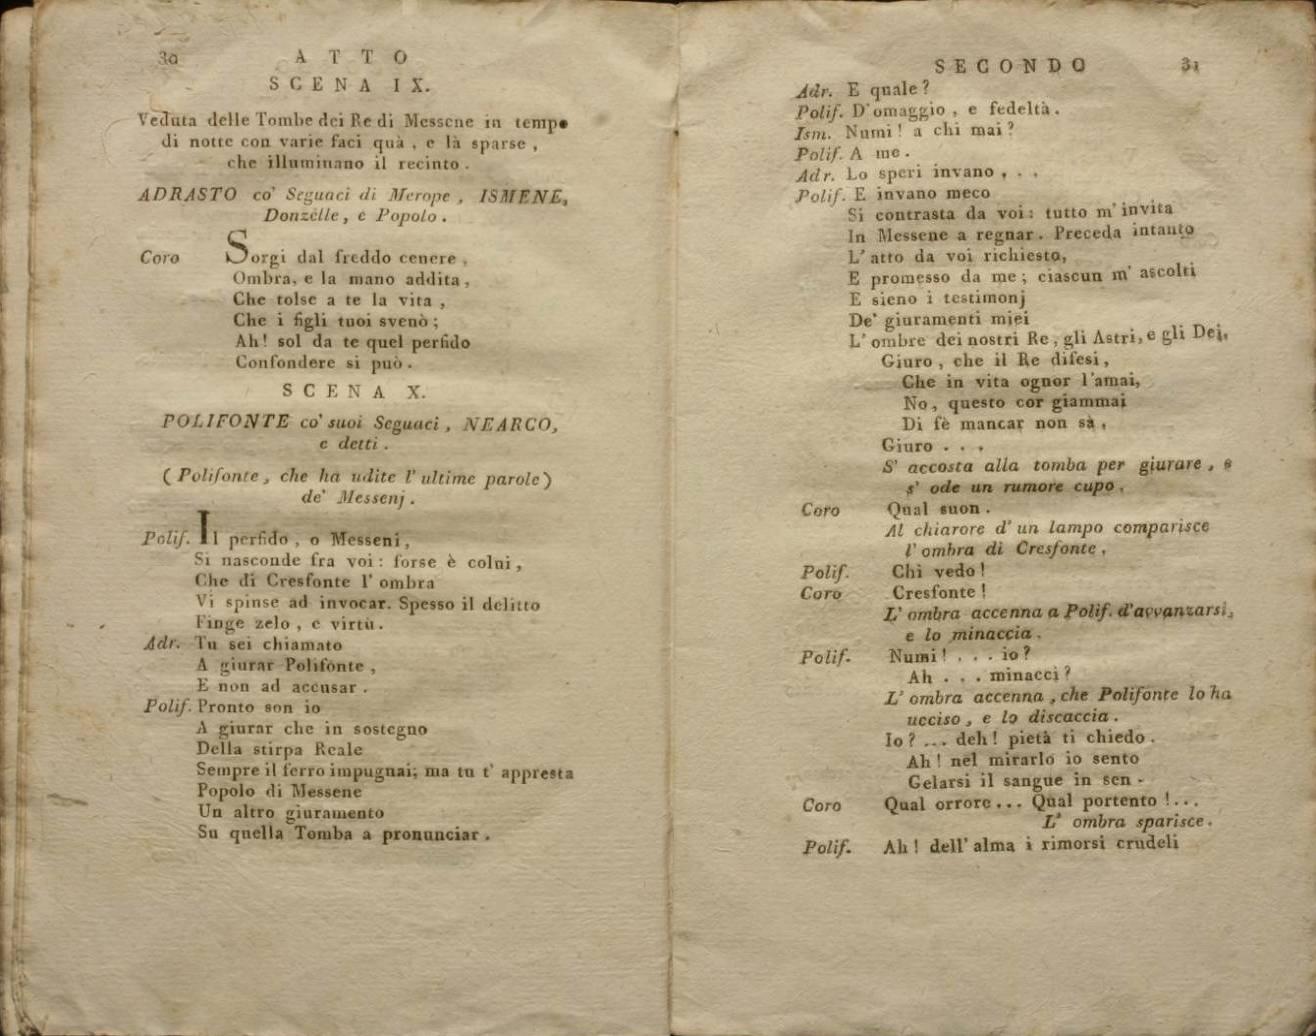 30
A T T O
S C E N A I X.
Veduta delle Tombe dei Re di Messene in tempo
di notte con varie faci quà, e là sparse,
che illuminano il recinto.
ADRASTO co' Seguaci di Merope, ISMENE,
Donzelle, e Popolo.
Coro Sorgi dal freddo cenere,
Ombra, e la mano addita,
Che tolse a te la vita,
Che i figli tuoi svenò;
Ah! sol da te quel perfido
Confondere si può.
S C E N A X.
POLIFONTE co' suoi Seguaci, NEARCO,
e detti.
(Polifonte, che ha udite l'ultime parole)
de' Messenj.
Polif. Il perfido, o Messeni,
Si nasconde fra voi: forse è colui,
Che di Cresfonte l'ombra
Vi spinse ad invocar. Spesso il delitto
Finge zelo, e virtù.
Adr. Tu sei chiamato
A giurar Polifonte,
E non ad accusar.
Polif. Pronto son io
A giurar che in sostegno
Della stirpa Reale
Sempre il ferro impugnai; ma tu t'appresta
Popolo di Messene
Un altro giuramento
Su quella Tomba a pronunciar.
S E C O N D O 31
Adr. E quale?
Polif. D'omaggio, e fedeltà.
Ism. Numi! a chi mai?
Polif. A me.
Adr. Lo speri invano . . .
Polif. E invano meco
Si contrasta da voi: tutto m'invita
In Messene a regnar. Preceda intanto
L'atto da voi richiesto,
E promesso da me; ciascun m'ascolti
E sieno i testimonj
De' giuramenti miei
L'ombre dei nostri Re, gli Astri, e gli Dei,
Giuro, che il Re difesi,
Che in vita ognor l'amai,
No, questo cor giammai
Di fè mancar non sà,
Giuro . . .
S' accosta alla tomba per giurare, e
s' ode un rumore cupo.
Coro Qual suon.
Al chiarore d'un lampo comparisce
l'ombra di Cresfonte.
Polif. Chi vedo!
Coro Cresfonte!
L'ombra accenna a Polif. d'avvanzarsi,
e lo minaccia.
Polif. Numi! . . . io?
Ah . . . minacci?
L'ombra accenna, che Polifonte lo ha
ucciso, e lo discaccia.
Io? ... deh! pietà ti chiedo.
Ah! nel mirarlo io sento
Gelarsi il sangue in sen -
Coro Qual orrore... Qual portento!...
L' ombra sparisce.
Polif. Ah! dell'alma i rimorsi crudeli